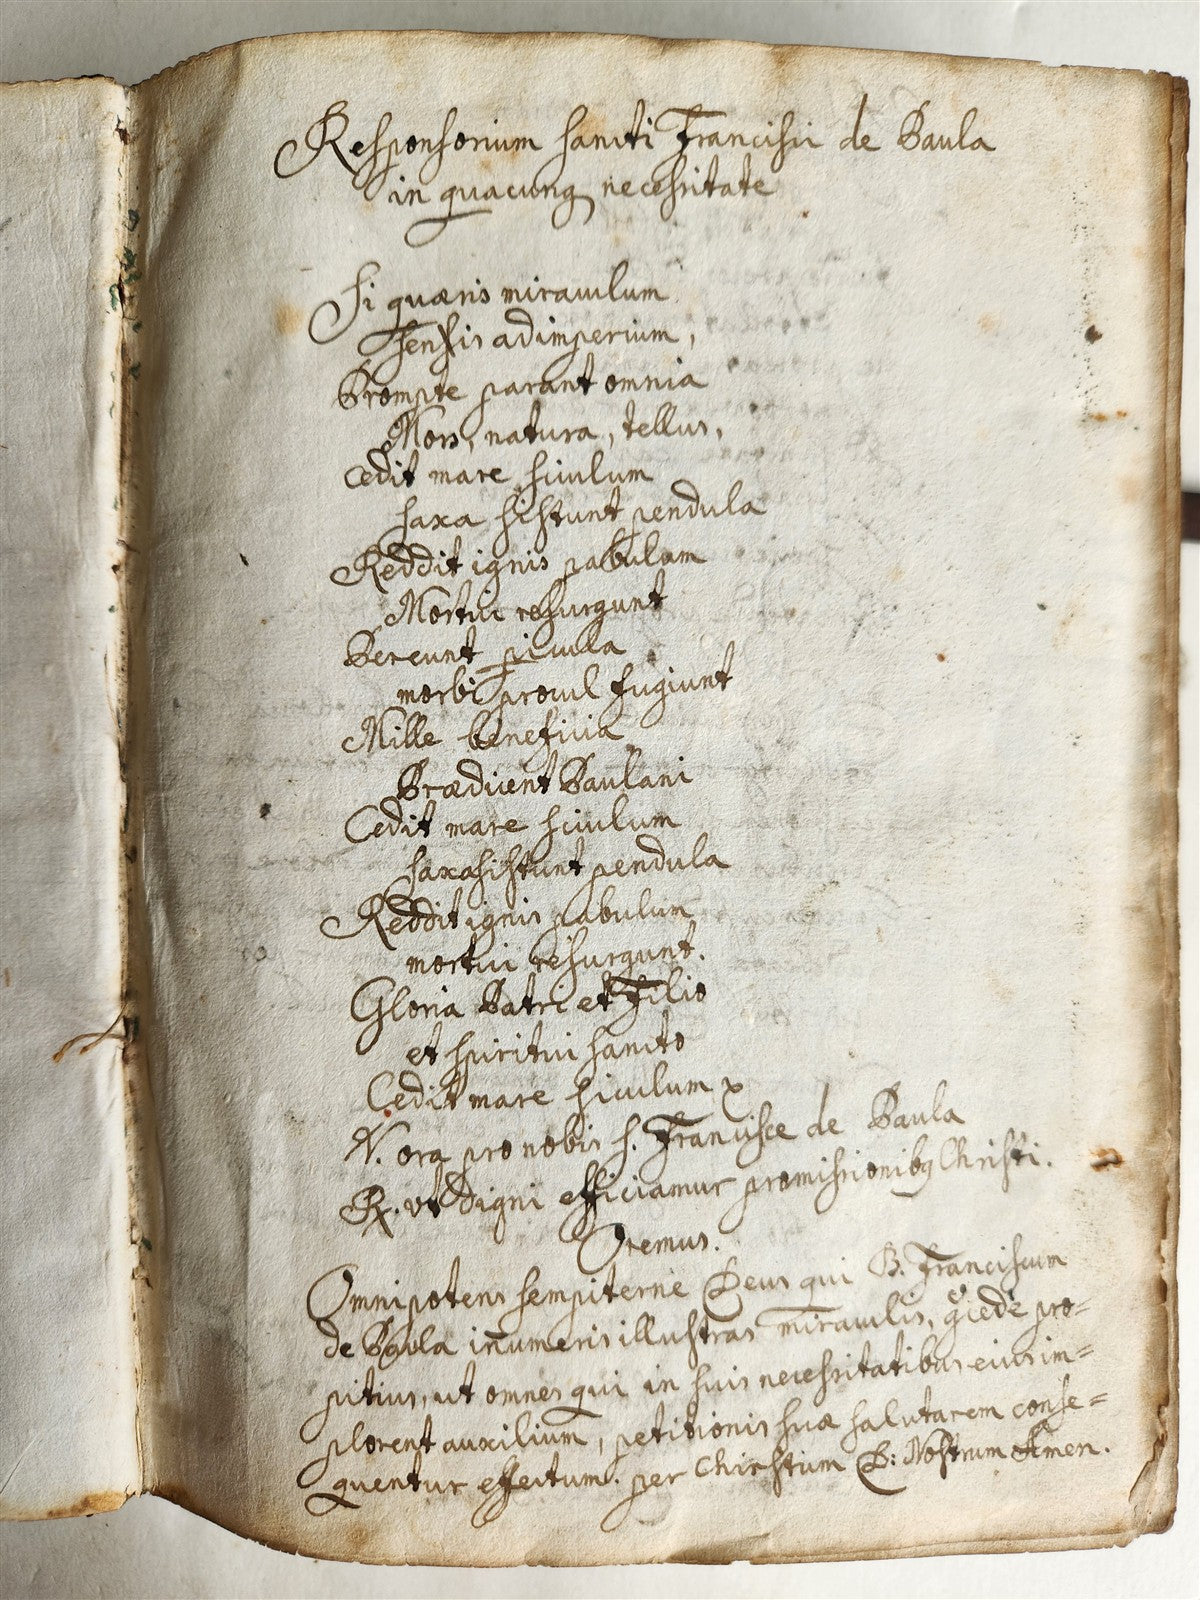 Responsorium sancti Francisci de Paula
in quacunq necessitate
Si quæris miraculum
Sensis ad imperium,
Prompte parant omnia
Mors, natura, tellus,
Cedit mare siculum
saxa sistunt pendula
Reddit ignis pabulum
Mortui resurgunt
Pereunt picula
morbi procul fugiunt
Mille beneficia
Prædicent Paulani
Cedit mare siculum
saxa sistunt pendula
Reddit ignis pabulum
mortui resurgunt.
Gloria Patri et Filio
et spiritui sancto
Cedit mare siculum
V. ora pro nobis S. Francisce de Paula
R. ut digni efficiamur promissionibq Christi.
Oremus.
Omnipotens sempiterne Deus qui B. Franciscum
de Paula inumeris illustras miraculis, cede pro=
pitius, ut omnes qui in suis necessitatibus eius im=
plorent auxilium, petitionis suæ salutarem conse=
quentur effectum. per Christum D: Nostrum Amen.